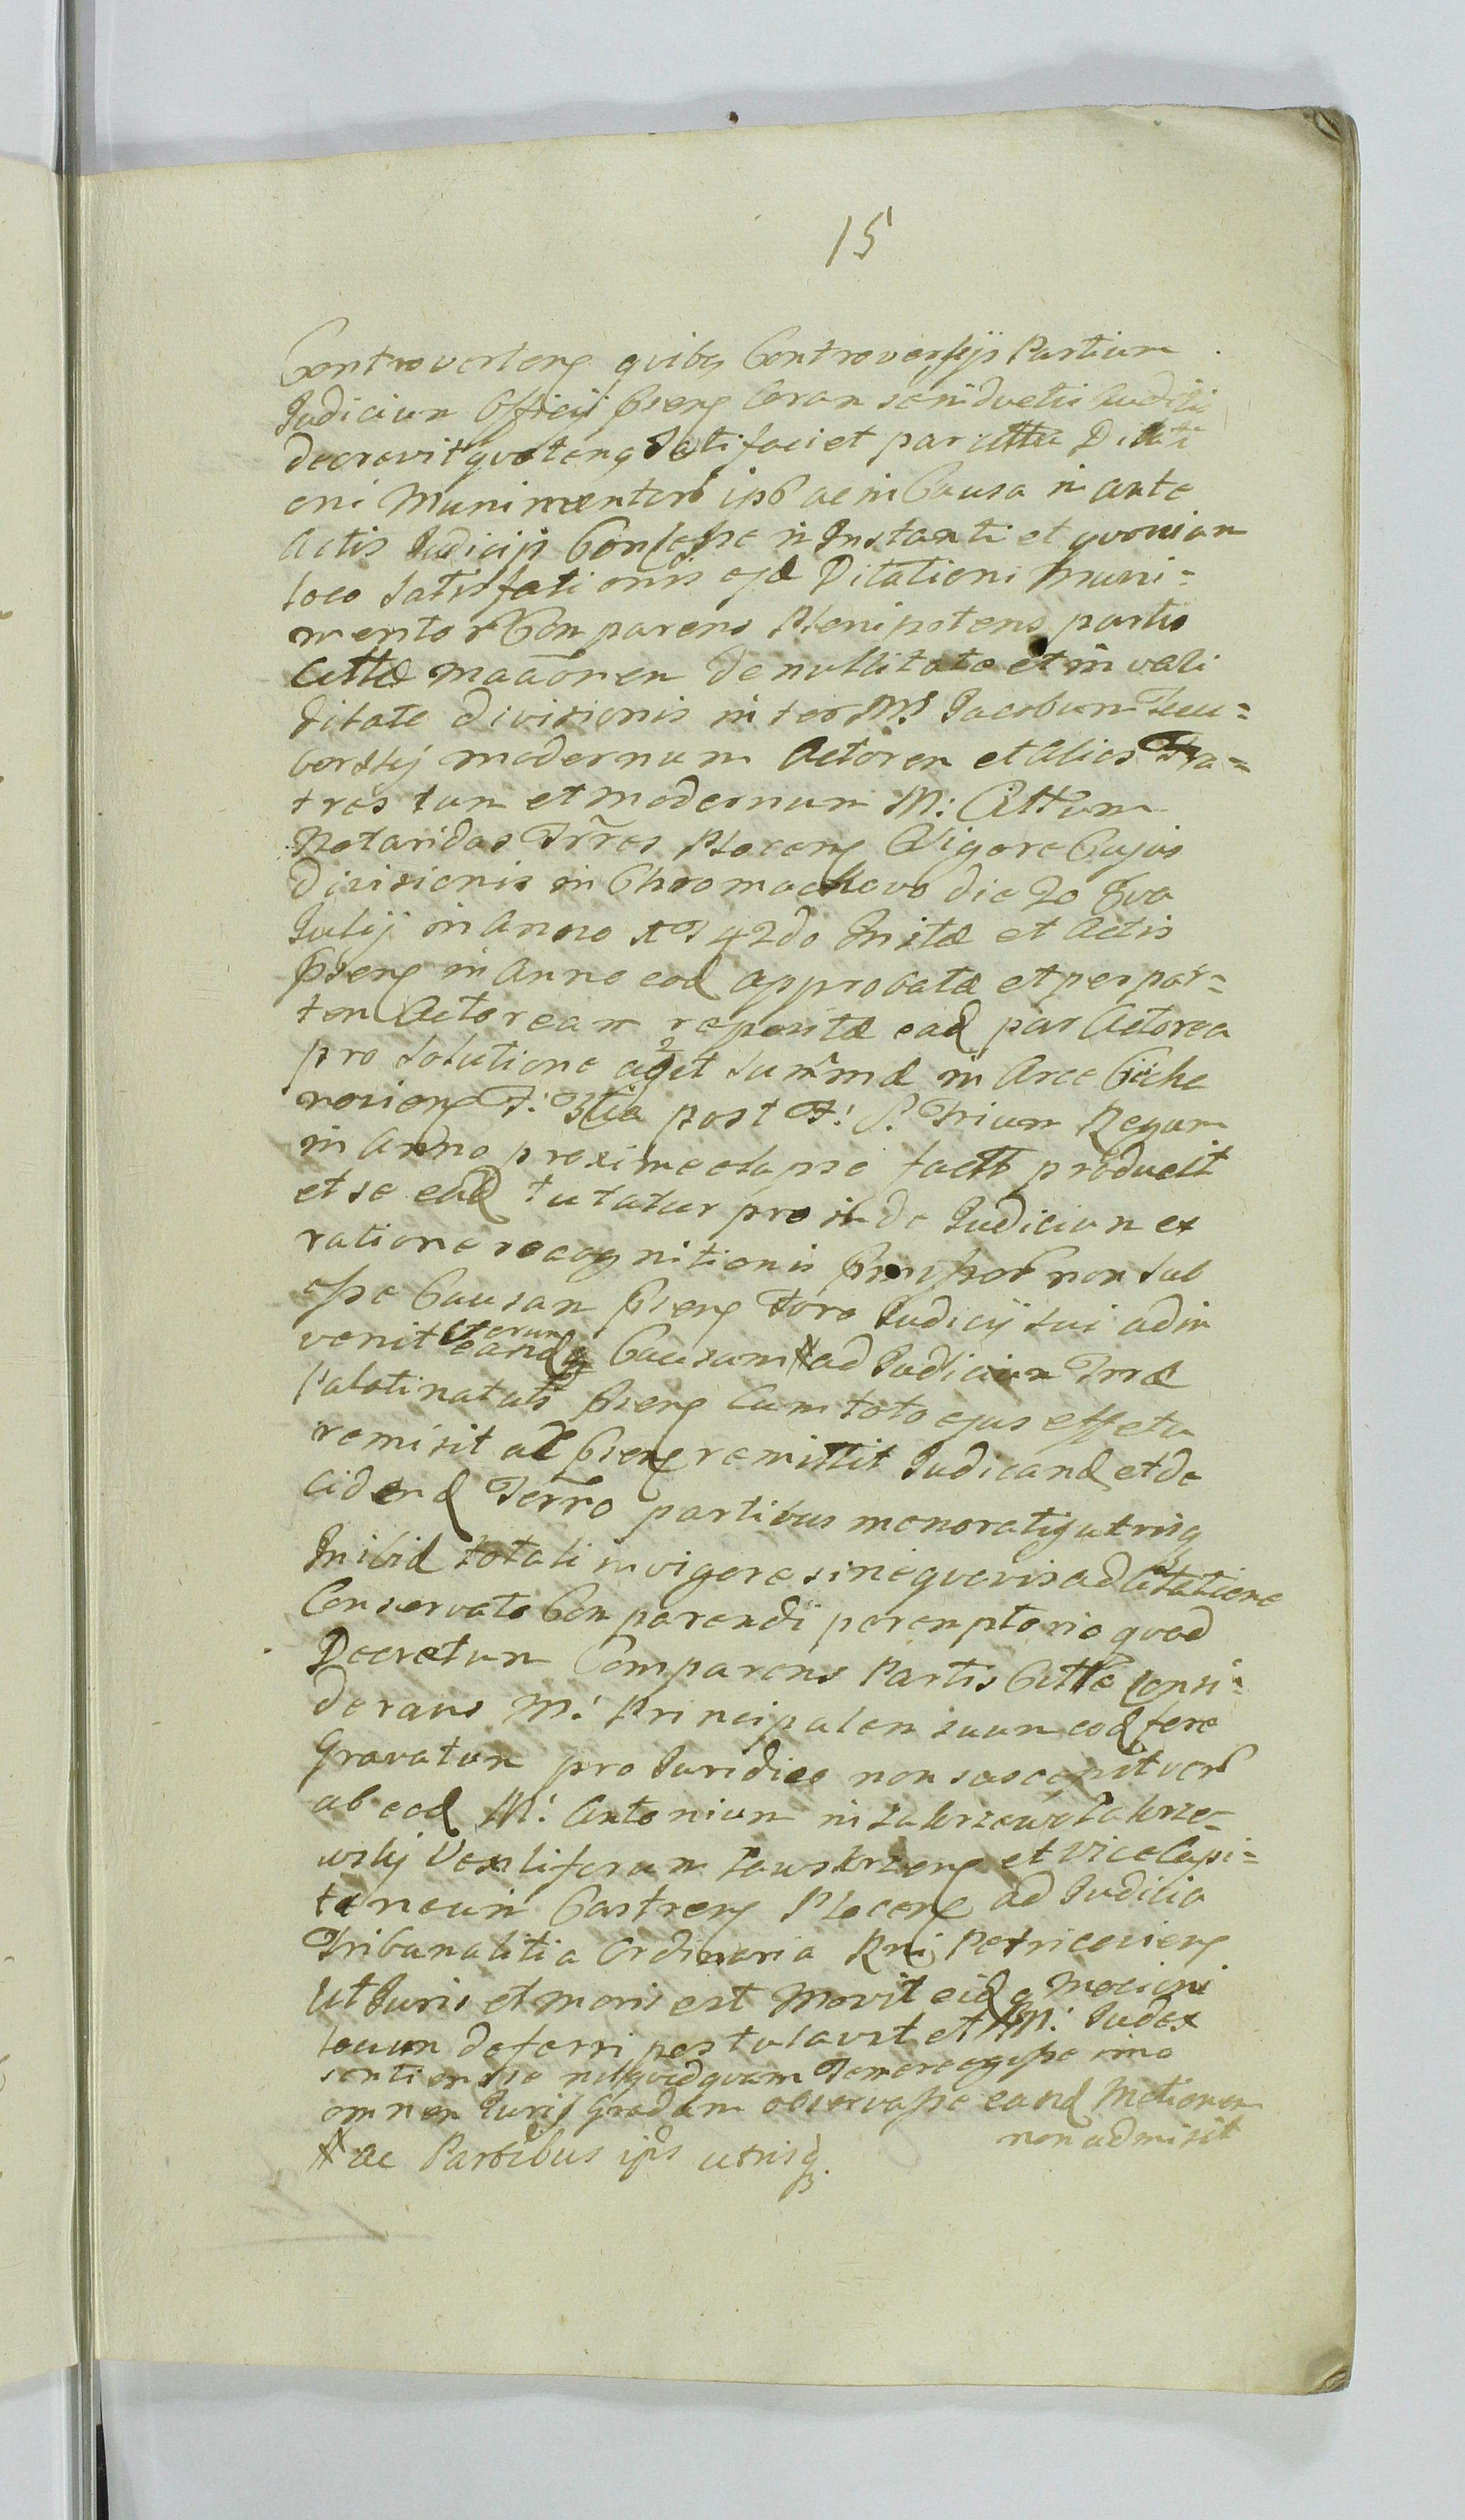 15
Controverteng quibg Controversyjs Partium
Judicium Officij pseng Coram se inductis auditis
decrevit quateng Satisfaciet par Citta Ditati
oni Munimentorb ipsb ac in Causa in ante
actis Judicijs Consesse in Instanti et quoniam
loco satisfationis ejd Ditationi Muni=
mentor Comparens Plenipotens partis
Cittæ maaonem de nullitate et in vali
ditate divisionis inter M: Jacobum
modernum Actorem et alios Fra=
tres tum et modernum M: Cittum
Notaridas Trres Ploceng Vigore Cujus
divisionis in Chromackowo die 20 8va
Julij in Anno 1742do Initæ et Actis
pseng in Anno eod approbatæ et per par=
tem Actoream repositæ ead par Actorea
pro solutione agit summæ in Arce Ciecha
novieng F: post F: S: Trium Regum
in Anno proxime elapso factb producit
et se ead tutatur pro inde Judicium ex
ratione recognitionis non sub
esse Causam pseng Foro Judicij sui adin
venit iterum eandg Causam # ad Judicium Trræ
Palatinatuts pseng Cum toto ejus effetu
remisit ac pseng remittit Judicand et de
cidend Terro partibus menoratis utrisq
Inibid totali in vigore sine quavis ad Citatione
Conservato Comparendi peremptorio quod
Decretum Comparens Partis Cittæ consi=
derans M: Principalem suum eod fere
Gravatum pro Juridico non suscepit verb
ab eod M: Antonium in Zakrzewo Zakrze=
wskij Vexiliferum et Vice Capi=
taneum Castreng Ploceng ad Judicia
Tribunalitia Ordinaria Rni Petricovieng
Ut Juris et moris est Movit eidg Mocioni
locum deferri postulavit et M: Judex
sentiens se nilquidquam Temere egisse imo
omnem Juris Gradum observasse eand Motionem
non admisit
# ac Partibus ipis utrisq